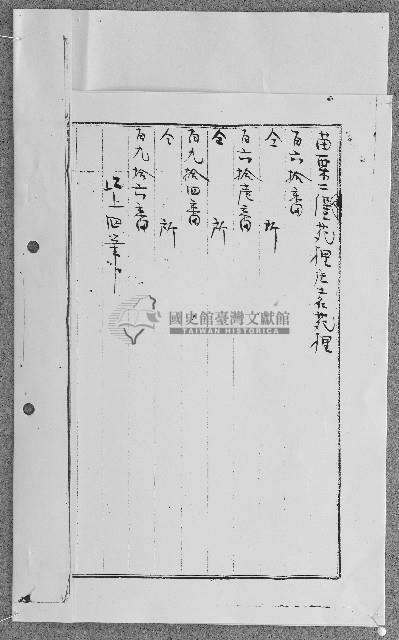 苗栗二堡苑裡庄土名苑裡
百六拾番
仝所
百六拾壱番
仝所
百九拾四番
仝所
百九拾六番
以上四筆
國史館臺灣文獻館
TAIWAN HISTORICA